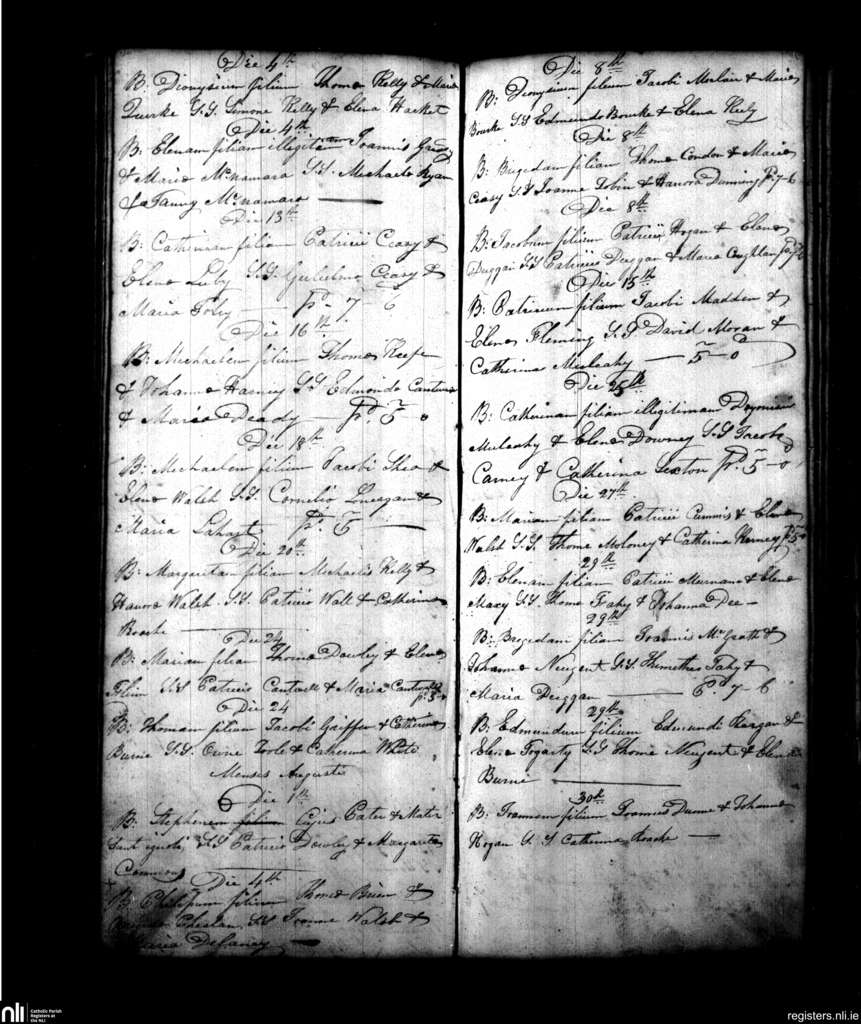 Die 4th
B: Dionysium filium Thoma Kelly & Maria
Quirke S.S. Simone Kelly & Elena Hacket
Die 4th
B: Elenam filiam illegitam Joannis
& Maria McNamara S.S. Michaele Ryan
& Fanny McNamara
Die 13th
B: Catherinam filiam Patricii Ceasy &
Elena Luby S.S. Gulielmo Ceasy &
Maria Foley pd. 7 6
Die 16th
B: Michaelem filium Thoma Keefe
& Johanna Harney S.S. Edmundo Cantwell
& Maria Deady pd. 5 0
Die 18th
B: Michaelem filium Jacobi Shea &
Elena Walsh S.S. Cornelio Lonergan &
Maria Lahart pd. 5
Die 20th
B: Margaritam filiam Michaelis Kelly &
Hanora Walsh S.S. Patricio Wall & Catherina
Roache
Die 24
B: Mariam filiam Thoma Dowley & Elena
S.S. Patricio Cantwell & Maria Cantwell
pd. 5-0
Die 24
B: Thomam filium Jacobi Griffin & Catherina
Burne S.S. Owne Toole & Catherina White
Menses Augusti
Die 1th
B: Stephenem filium Cujus Pater & Mater
sunt ignoti S.S. Patricio Dowley & Margarita
Commons
Die 4th
B: Philipum filium Thoma Brien &
S.S. Joanne Walsh &
Maria Delaney
Die 8th
B: Dionysium filium Jacobi & Maria
Bourke S.S. Edmundo Bourke & Elena Kiely
Die 8th
B: Brigidam filiam Thoma Condon & Maria
Ceasy S.S. Joanne Tobin & Hanora Dunning pd. 7-6
Die 8th
B: Jacobum filium Patricii Hogan & Elena
Duggan S.S. Patricius Duggan & Maria Coughlan
Die 15th
B: Patricium filium Jacobi Madden &
Elena Fleming S.S. David Moran &
Catherina Mulcahy 5 0
Die 25th
B: Catherinam filiam illigitimam
Mulcahy & Elena Downey S.S. Jacobo
Carney & Catherina Sexton pd. 5-0
Die 27th
B: Mariam filiam Patricii Cummis & Elena
Walsh S.S. Thoma Moloney & Catherina Harney pd. 5-0
29th
B: Elenam filiam Patricii Murnane & Elena
Macy S.S. Thoma Fahy & Johanna Dee
29th
B: Brigidam filiam Joannis McGrath &
Johanna Neugent S.S. Fahy &
Maria Duggan pd. 7-6
29th
B: Edmundum filium Edmundi Keegan &
Elena Fogarty S.S. Thoma Neugent & Elena
Burne
30th
B: Joannem filium Joannis Dunne & Johanna
Hogan S.S. Catherina Roache
nli
Catholic Parish
Registers at
the NLI
registers.nli.ie